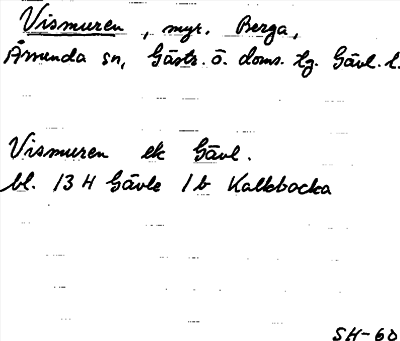 Vismuren, myr. Berga,
Åmunda sn, Gästr. ö. doms. tg. Gävl. l.
Vismuren ek Gävl.
bl. 13 H Gävle 1b Kalkbacka
SH-60